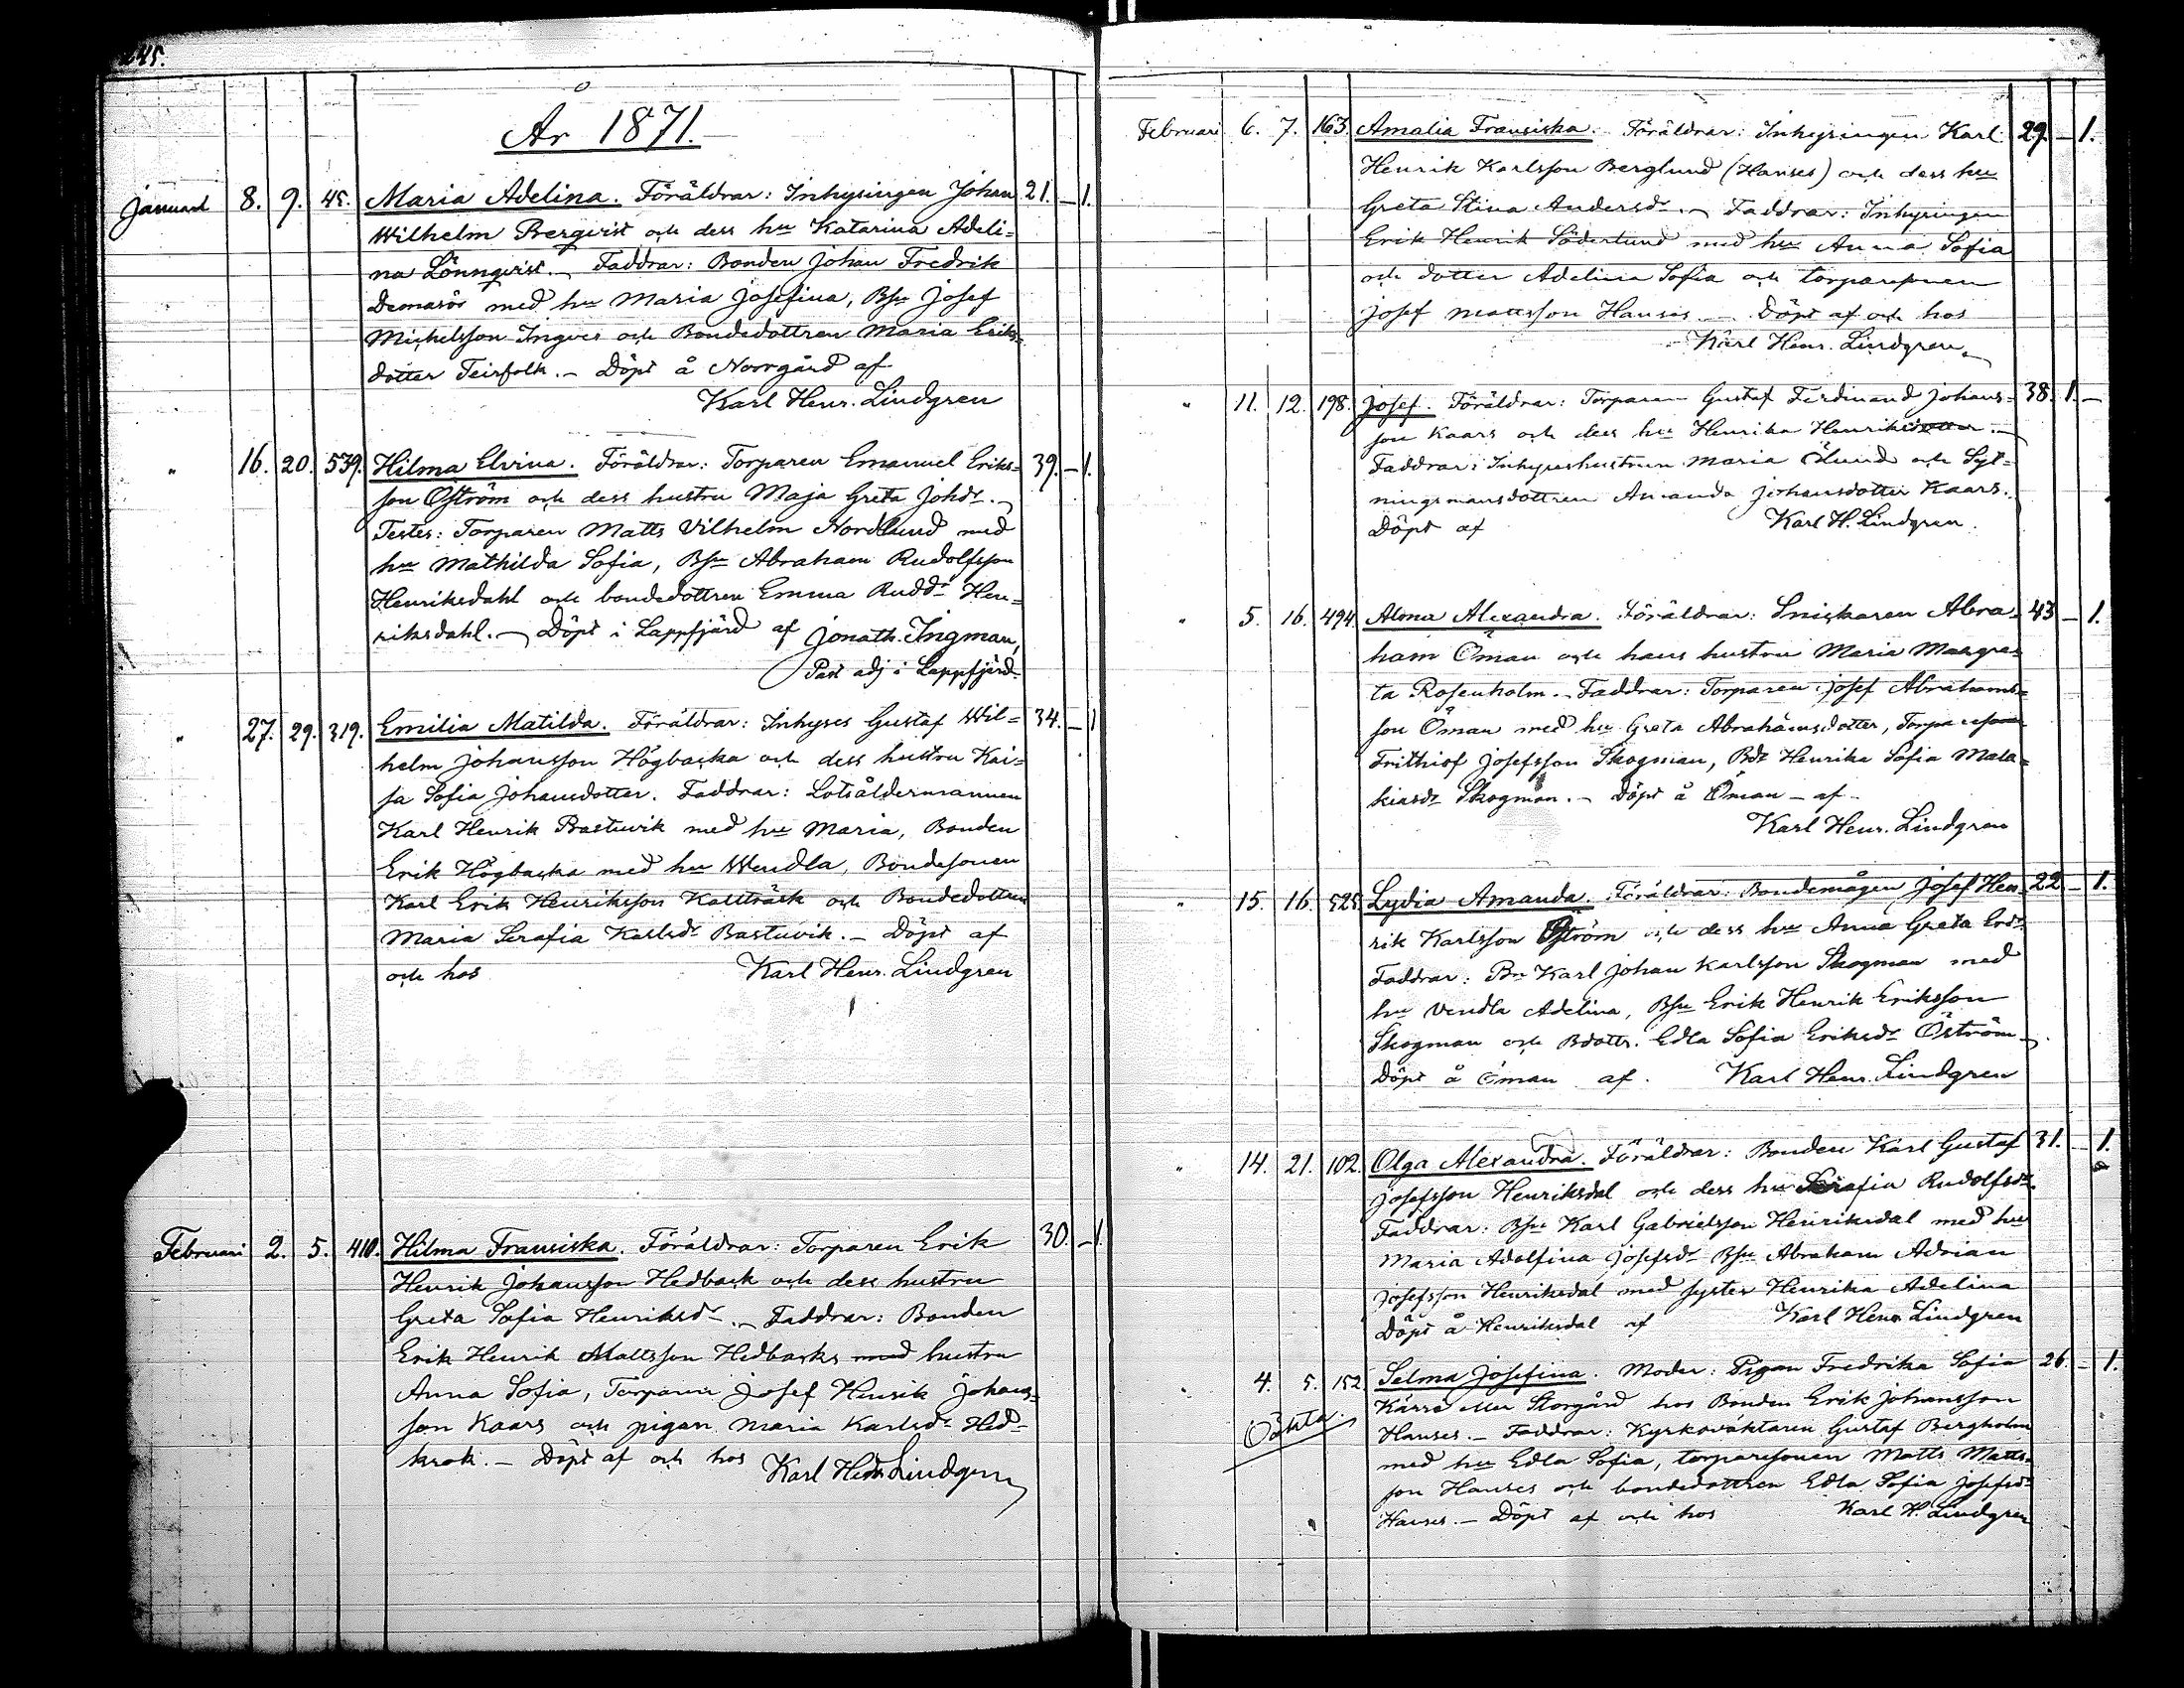 År 1871.
Januari 8. 9. 45. Maria Adelina. Föräldrar: Inhysingen Johan 21. – 1.
Wilhelm Bergqvist och dess hu Katarina Adeli=
na Lönnqvist. – Faddrar: Bonden Johan Fredrik
med hu Maria Josefina, Bsn Josef
Michelsson Ingves och Bondedottren Maria Eriks=
dotter Teirfolk. – Döpt å Norrgård af
Karl Henr. Lindgren
" 16. 20. 539. Hilma Elvina. Föräldrar: Torparen Emanuel Eriks= 39. – 1.
son Öström och dess hustru Maja Greta Johdr. –
Testes: Torparen Matts Vilhelm Nordlund med
hu Mathilda Sofia, Bsn Abraham Rudolfsson
Henriksdahl och bondedottren Emma Ruddr Hen=
riksdahl. – Döpt i Lappfjärd af Jonath. Ingman,
Past adj i Lappfjärd
" 27. 29. 319. Emilia Matilda. Föräldrar: Inhyses Gustaf Wil= 34. – 1
helm Johansson Högbacka och dess hustru Kai=
sa Sofia Johansdotter. Faddrar: Lotsåldermannen
Karl Henrik Bastuvik med hu Maria, Bonden
Erik Högbacka med hu Wendla, Bondesonen
Karl Erik Henriksson Kallträsk och Bondedottren
Maria Serafia Karlsdr Bastuvik. – Döpt af
och hos Karl Henr. Lindgren
Februari 2. 5. 410. Hilma Fransiska. Föräldrar: Torparen Erik 30. – 1.
Henrik Johansson Hedback och dess hustru
Greta Sofia Henriksdr. – Faddrar: Bonden
Erik Henrik Mattsson Hedbacks med hustru
Anna Sofia, Torparen Josef Henrik Johans=
son Kaars och pigan Maria Karlsdr Hed=
krok. – Döpt af och hos Karl Henr Lindgren
Februari 6. 7. 163. Amalia Fransiska. Föräldrar: Inhysingen Karl 29. – 1.
Henrik Karlsson Berglund (Hanses) och dess hu
Greta Stina Andersdr. – Faddrar: Inhysingen
Erik Henrik Söderlund med hu Anna Sofia
och dotter Adelina Sofia och torparesonen
Josef Mattsson Hanses. – Döpt af och hos
Karl Henr. Lindgren
" 11. 12. 198. Josef. Föräldrar: Torparen Gustaf Ferdinand Johans= 38. 1. –
son Kaars och dess hu Henrika Henriksdotter. –
Faddrar: Inhyseshustrun Maria Ölund och Syt=
ningsmansdottren Amanda Johansdotter Kaars.
Döpt af Karl H. Lindgren.
" 5. 16. 494. Alma Alexandra. Föräldrar: Snickaren Abra= 43 – 1.
ham Öman och hans hustru Maria Margre=
ta Rosenholm. – Faddrar: Torparen Josef Abrahams=
son Öman med hu Greta Abrahamsdotter, Torparesonen
Frithiof Josefsson Skogman, Bdr Henrika Sofia Mala=
kiasdr Skogman. – Döpt å Öman – af
Karl Henr. Lindgren
" 15. 16. 525. Lydia Amanda. Föräldrar: Bondemågen Josef Hen= 22 – 1.
rik Karlsson Öström och dess hu Anna Greta Erdr.
Faddrar: Bn Karl Johan Karlsson Skogman med
hu Vendla Adelina, Bsn Erik Henrik Eriksson
Skogman och Bdottr. Edla Sofia Eriksdr Öström –
Döpt å Öman af. Karl Henr. Lindgren
" 14. 21. 102. Olga Alexandra. Föräldrar: Bonden Karl Gustaf 31. – 1.
Josefsson Henriksdal och dess hu Serafia Rudolfsdr.
Faddrar: Bsn Karl Gabrielsson Henriksdal med hu
Maria Adolfina Josefsdr Bsn Abraham Adrian
Josefsson Henriksdal med syster Henrika Adelina
Döpt å Henriksdal af Karl Henr Lindgren
" 4. 5. 152. Selma Josefina. Moder: Pigan Fredrika Sofia 26. – 1.
Kärra eller Storgård hos Bonden Erik Johansson
Oäkta.
Hanses. – Faddrar: Kyrkováktaren Gustaf Bergholm
med hu Edla Sofia, torparesonen Matts Matts=
son Hanses och bondedottren Edla Sofia Josefsdr
Hanses. – Döpt af och hos Karl H. Lindgren